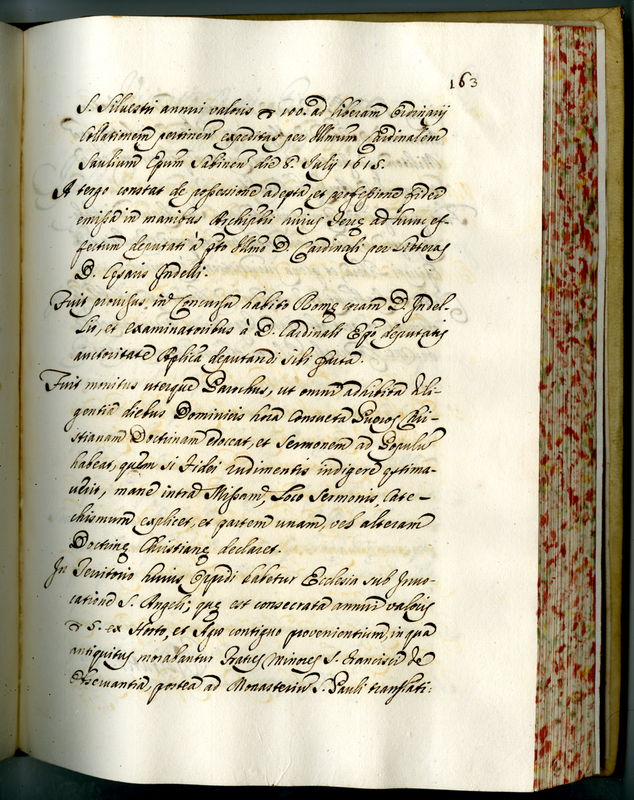 163
S. Siluestri annui valoris ▽ 100. ad liberam Ordinarij
Collationem pertinen expeditas per Illmum Cardinalem
Saulium Epum Sabinen, die 8. Julij 1615.
A tergo constat de possessione adepta, et professione fidei
emissa in manibus Archipbri huius Terre ad hunc ef-
fectum deputati à pto Illmo D. Cardinali per literas
D. Cesaris Indelli.
Fuit prouisus in Concursu habito Rome coram D. Indel-
lio, et examinatoribus à D. Cardinali Epo deputatis
auctoritate Aplica deputandi sibi facta.
Fuit monitus uterque Parochus, ut omni adhibita dili-
gentia diebus Dominicis hora Consueta Pueros Chri-
stianam Doctrinam edoceat, et Sermonem ad Populu
habeat, quem si Fidei rudimentis indigere estima-
uerit, mane intra Missam, Loco Sermonis, Cate-
chismum explicet, et partem unam, vel alteram
Doctrine Christiane declaret.
In Territorio huius Oppidi habetur Ecclesia sub Inuo-
catione S. Angeli, que est consecrata annui valoris
▽ 5. ex Horto, et Agro contiguo prouenientium, in qua
antiquitus morabantur Fratres Minores S. Francisci de
Obseruantia, postea ad Monasterium S. Pauli translati: